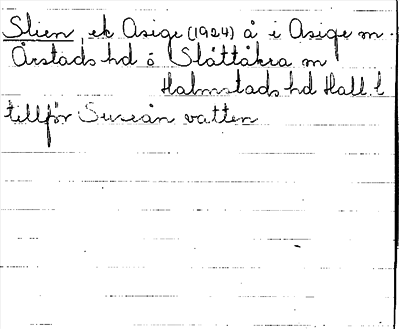 Slien, ek Asige (1924) å i Asige m.
Årstads hd ö Slättåkra m
Halmstads hd Hall. l
tillför Suseån vatten